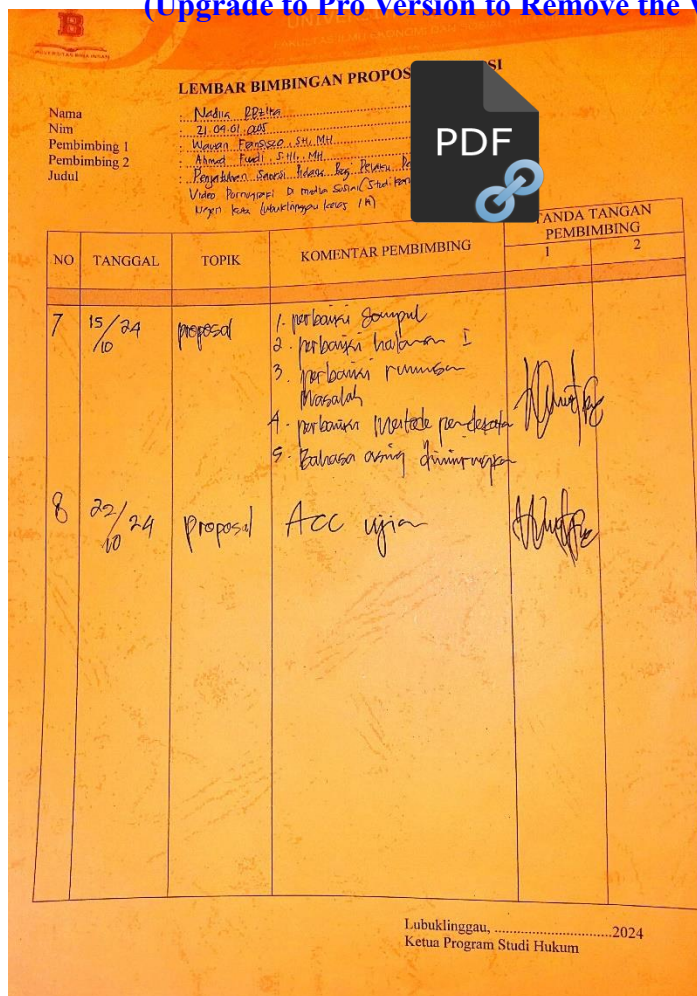 (Upgrade to Pro Version to Remove the
UNIVERSITAS BINA INSAN
LEMBAR BIMBINGAN PROPOS SI
Nama : Nadila
Nim : 21.09.01.005
Pembimbing 1 : Wawan Fransisco, SH, MH
Pembimbing 2 : Ahmad Fuadi, S.HI, MH
Judul : Penjatuhan Sanksi Pidana Bagi Pelaku
Video Pornografi Di media Sosial (Studi
Negeri Kota Lubuklinggau kelas 1A)
PDF
NO TANGGAL TOPIK KOMENTAR PEMBIMBING TANDA TANGAN
PEMBIMBING
1 2
7 15/10/24 proposal 1. perbaiki Sampul
2. perbaiki halaman I
3. perbaiki rumusan
Masalah
4. perbaiki metode pendekata
5. Bahasa asing dimiringkan
8 22/10/24 proposal Acc ujian
Lubuklinggau, ................................2024
Ketua Program Studi Hukum